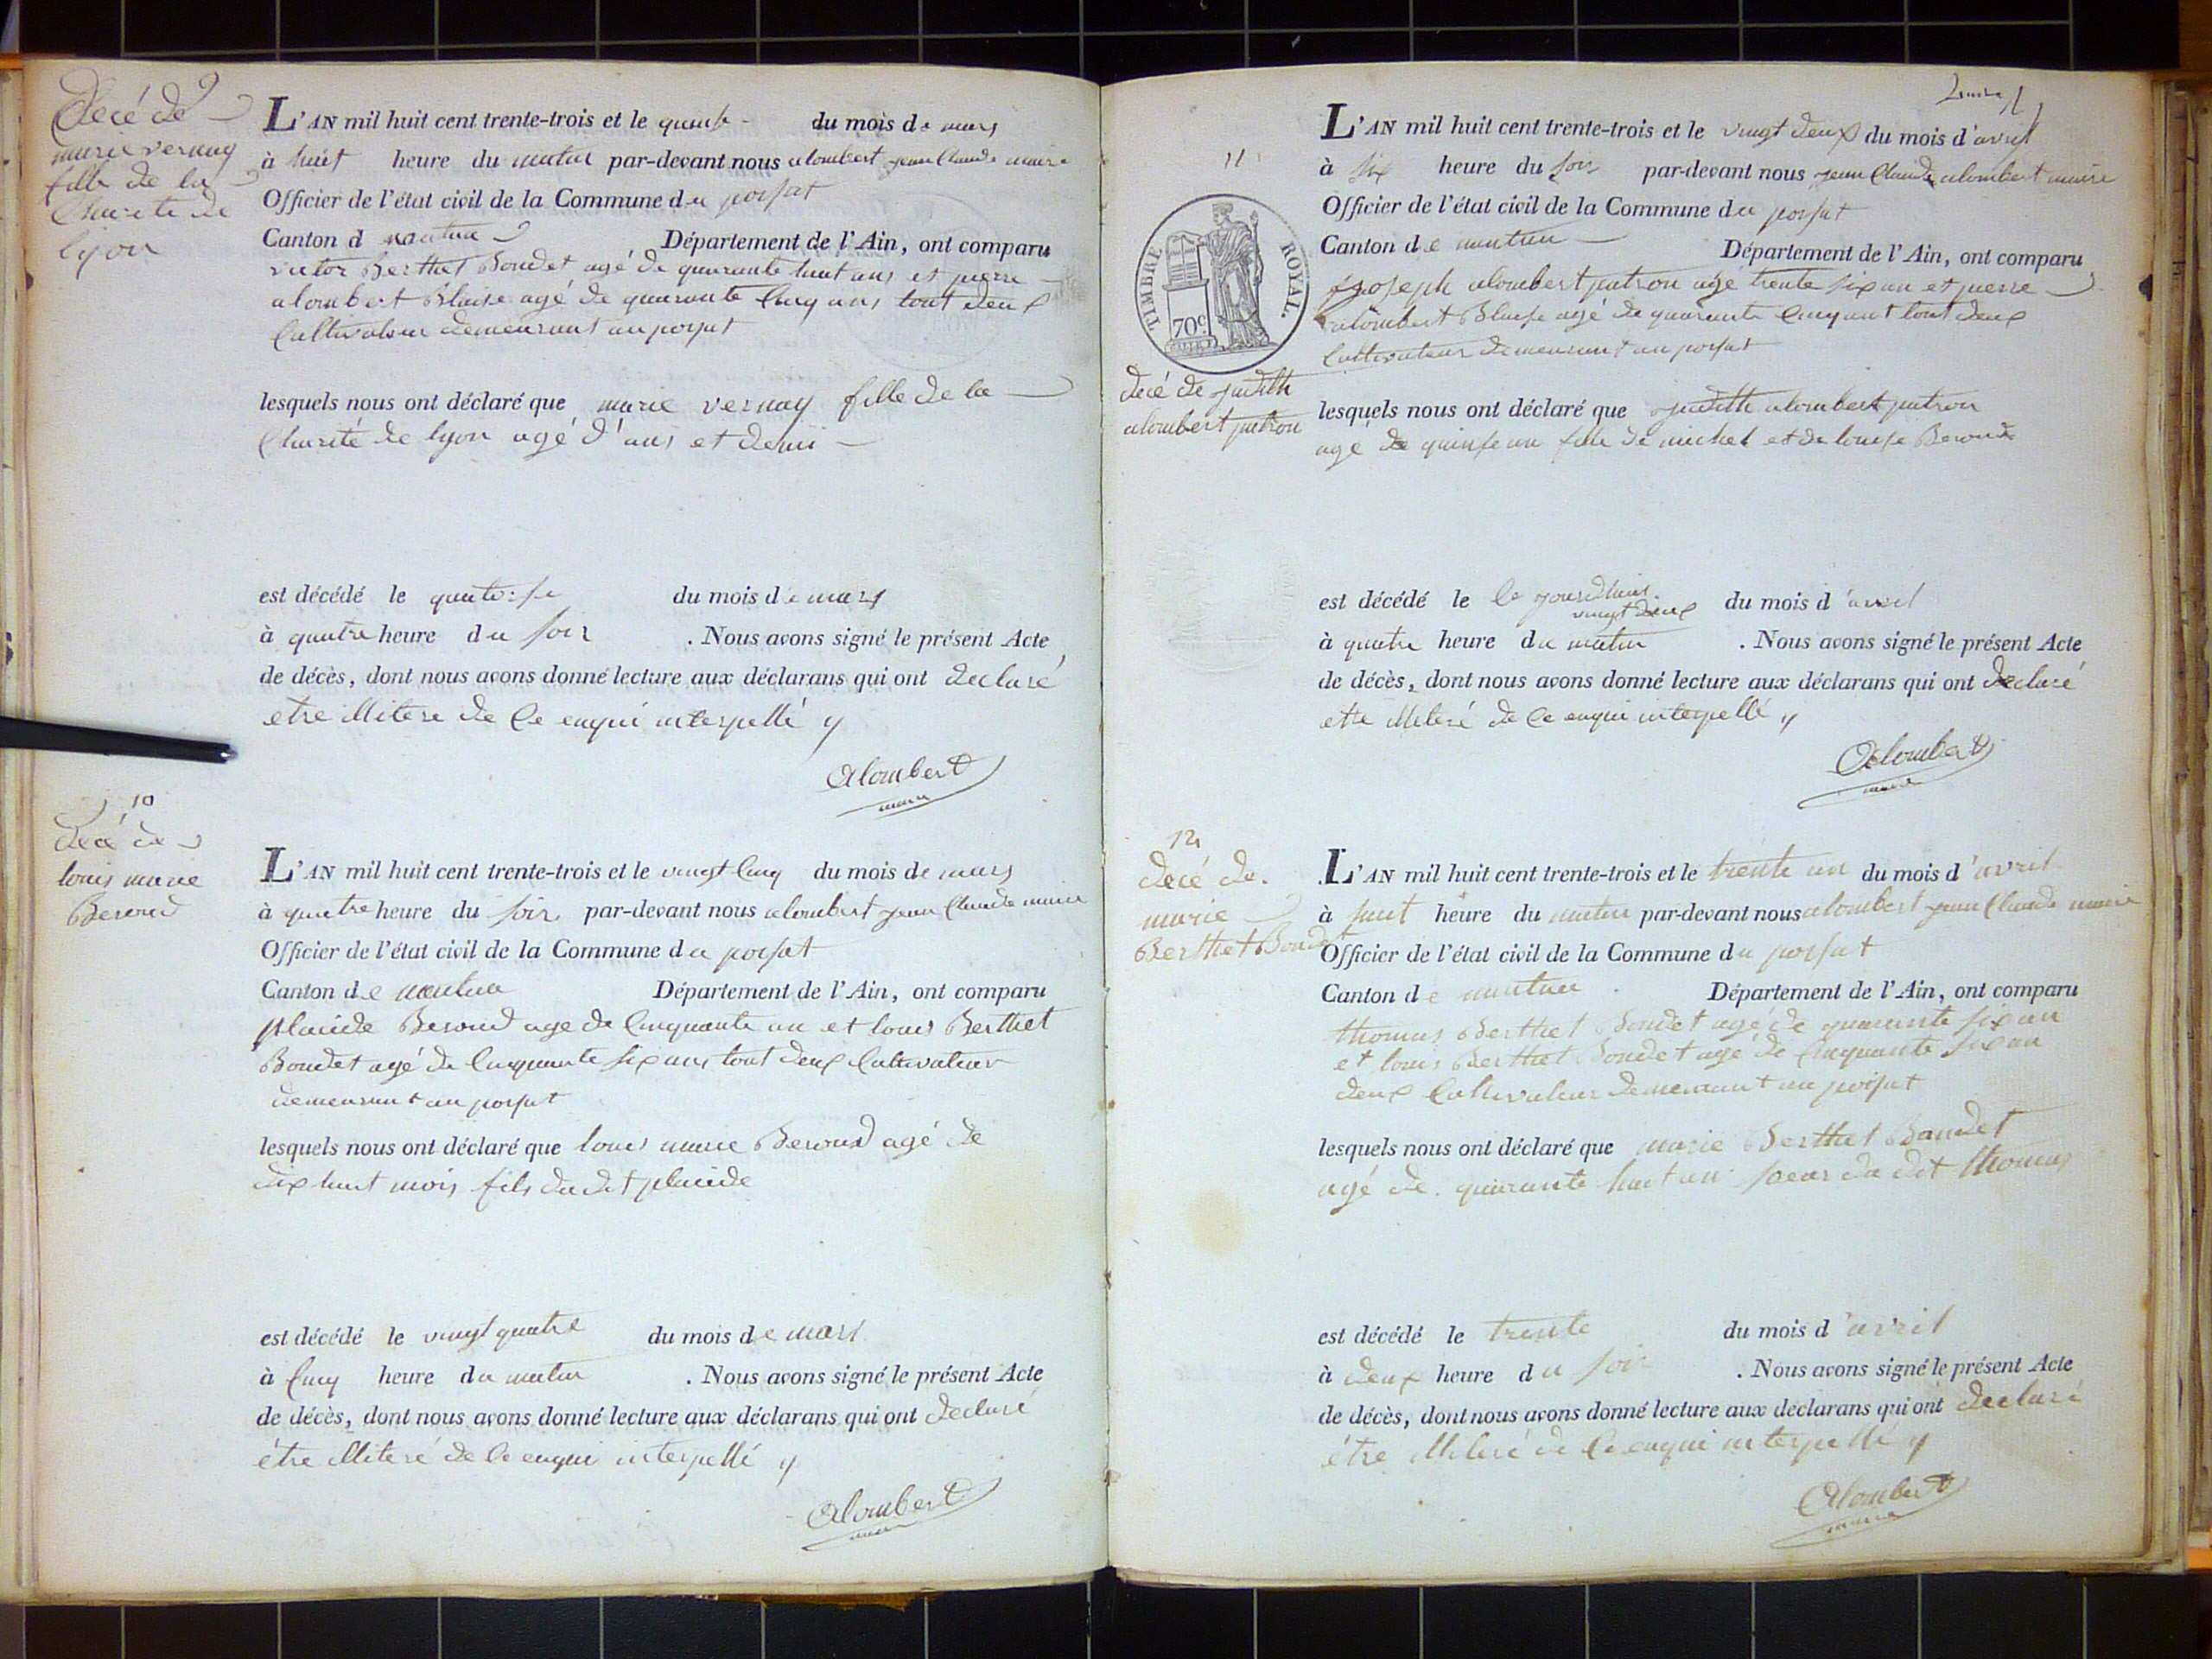 9
decé de
marie vernay
fille de la
Charité de
lyon
L'AN mil huit cent trente-trois et le quinse du mois de mars
à huit heure du matin par-devant nous alombert jean Claude maire
Officier de l'état civil de la Commune du poisat
Canton d nantua Département de l'Ain, ont comparu
victor Berthet Boudet agé de quarante huit ans et pierre
alombert Blaise agé de quarante Cinq ans tout deux
Cultivateur demeurant au poisat
lesquels nous ont déclaré que marie vernay fille de la
Charité de lyon agé d'ans et demi
est décédé le quatorse du mois de mars
à quatre heure du soir . Nous avons signé le présent Acte
de décès, dont nous avons donné lecture aux déclarans qui ont declaré
etre illitere de ce enqui interpellé
alombert
maire
10
decé de
louis marie
Beroud
L'AN mil huit cent trente-trois et le vingt Cinq du mois de mars
à quatre heure du soir par-devant nous alombert jean Claude maire
Officier de l'état civil de la Commune du poisat
Canton de nantua Département de l'Ain, ont comparu
placide Beroud age de Cinquante an et louis Berthet
Boudet agé de Cinquante six ans tout deux Cultivateur
demeurant au poisat
lesquels nous ont déclaré que louis marie Beroud agé de
dix huit mois fils du dit placide
est décédé le vingt quatre du mois de mars
à Cinq heure du matin . Nous avons signé le présent Acte
de décès, dont nous avons donné lecture aux déclarans qui ont declaré
étre illiteré de ce enqui interpellé
alombert
maire
11
TIMBRE ROYAL.
70c
decé de judith
alombert patron
L'AN mil huit cent trente-trois et le vingt deux du mois d'avril
à six heure du soir par-devant nous jean Claude alombert maire
Officier de l'état civil de la Commune du poisat
Canton de nantua Département de l'Ain, ont comparu
joseph alombert patron agé trente six an et pierre
alombert Blaise agé de quarante Cinq ant tout deux
Cultivateur demeurant au poisat
lesquels nous ont déclaré que judith alombert patron
agé de quinse an fille de michel et de louise Beroud
est décédé le ce jourdhuit vingt deux du mois d'avril
à quatre heure du matin . Nous avons signé le présent Acte
de décès, dont nous avons donné lecture aux déclarans qui ont declaré
ette illiteré de ce enqui interpellé
alombert
maire
12
decé de
marie
Berthet Boudet
L'AN mil huit cent trente-trois et le trente un du mois d'avril
à huit heure du matin par-devant nous alombert jean Claude maire
Officier de l'état civil de la Commune du poisat
Canton de nantua Département de l'Ain, ont comparu
thomas Berthet Boudet agé de quarante six an
et louis Berthet Boudet agé de Cinquante six an
deux Cultivateur demeurant au poisat
lesquels nous ont déclaré que marie Berthet Baudet
agé de quarante huit an soeur du dit thomas
est décédé le trente du mois d'avril
à deux heure du soir . Nous avons signé le présent Acte
de décès, dont nous avons donné lecture aux déclarans qui ont declaré
étre illiteré de ce enqui interpellé
alombert
maire